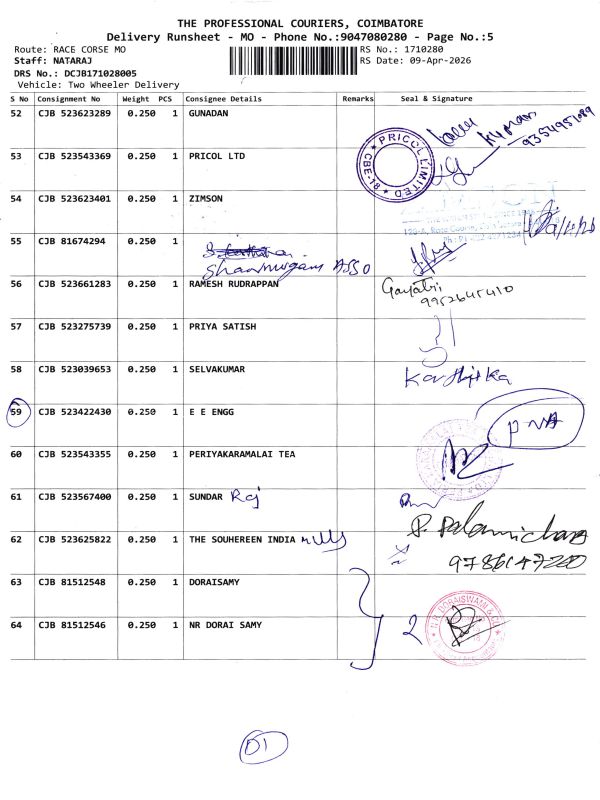 THE PROFESSIONAL COURIERS, COIMBATORE
Delivery Runsheet - MO - Phone No.:9047080280 - Page No.:5
Route: RACE CORSE MO
RS No.: 1710280
Staff: NATARAJ
RS Date: 09-Apr-2026
DRS No.: DCJB171028005
Vehicle: Two Wheeler Delivery
S No Consignment No Weight PCS Consignee Details Remarks Seal & Signature
52 CJB 523623289 0.250 1 GUNADAN
9354951089
53 CJB 523543369 0.250 1 PRICOL LTD
PRICOL LIMITED CBE-18
54 CJB 523623401 0.250 1 ZIMSON
55 CJB 81674294 0.250 1
Shanmugam ASSO
56 CJB 523661283 0.250 1 RAMESH RUDRAPPAN Gayatri
9952645410
57 CJB 523275739 0.250 1 PRIYA SATISH
58 CJB 523039653 0.250 1 SELVAKUMAR Karthika
59 CJB 523422430 0.250 1 E E ENGG PNA
60 CJB 523543355 0.250 1 PERIYAKARAMALAI TEA
61 CJB 523567400 0.250 1 SUNDAR Raj
62 CJB 523625822 0.250 1 THE SOUHEREEN INDIA Mills
9786147200
63 CJB 81512548 0.250 1 DORAISAMY
64 CJB 81512546 0.250 1 NR DORAI SAMY 2
N.R. DORAISWAMI & CO